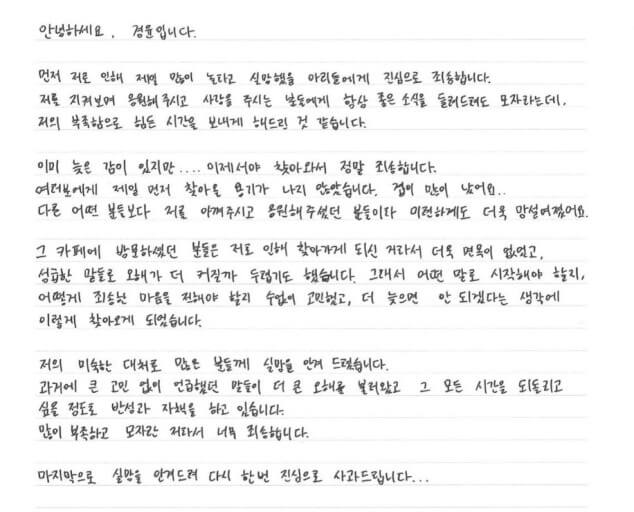 안녕하세요, 경윤입니다.
먼저 저로 인해 제일 많이 놀라고 실망했을 아리들에게 진심으로 죄송합니다.
저를 지켜보며 응원해주시고 사랑을 주시는 날들에게 항상 좋은 소식을 들려드려도 모자라는데,
저의 부족함으로 힘든 시간을 보내게 해드린 것 같습니다.
이미 늦은 감이 있지만.... 이제서야 찾아와서 정말 죄송합니다.
여러분에게 제일 먼저 찾아올 용기가 나지 않았습니다. 겁이 많이 났어요..
다른 어떤 분들보다 저를 아껴주시고 응원해주셨던 분들이라 이런한게도 더욱 망설여졌어요.
그 카페에 방문하셨던 분들은 저로 인해 찾아가게 되신 거라서 더욱 면목이 없었고,
섣급한 말들로 오해가 더 커질까 두렵기도 했습니다. 그래서 어떤 말로 시작해야 할지,
어떻게 죄송한 마음을 전해야 할지 수없이 고민했고, 더 늦으면 안 되겠다는 생각에
이렇게 찾아오게 되었습니다.
저의 미숙한 대처로 많은 분들께 실망을 안겨 드렸습니다.
과거에 큰 고민 없이 언급했던 말들이 더 큰 오해를 불러왔고 그 모든 시간을 되돌리고
싶을 정도로 반성과 자책을 하고 있습니다.
많이 부족하고 모자란 저라서 너무 죄송합니다.
마지막으로 실망을 안겨드려 다시 한번 진심으로 사과드립니다...